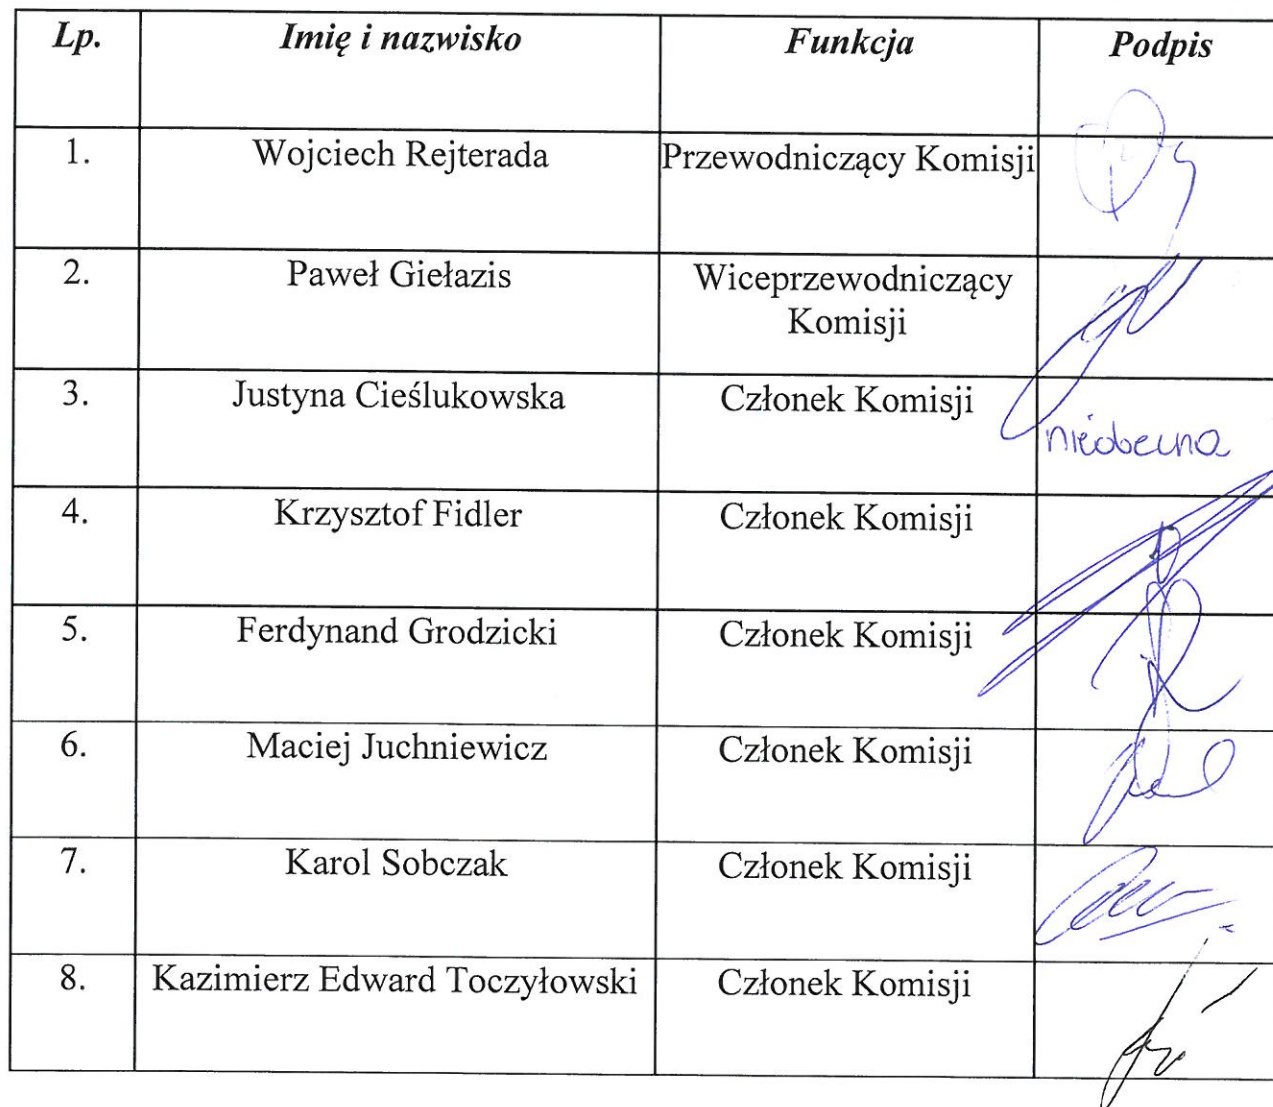 Lp. Imię i nazwisko Funkcja Podpis
1. Wojciech Rejterada Przewodniczący Komisji
2. Paweł Giełazis Wiceprzewodniczący
Komisji
3. Justyna Cieślukowska Członek Komisji
nieobecna
4. Krzysztof Fidler Członek Komisji
5. Ferdynand Grodzicki Członek Komisji
6. Maciej Juchniewicz Członek Komisji
7. Karol Sobczak Członek Komisji
8. Kazimierz Edward Toczyłowski Członek Komisji